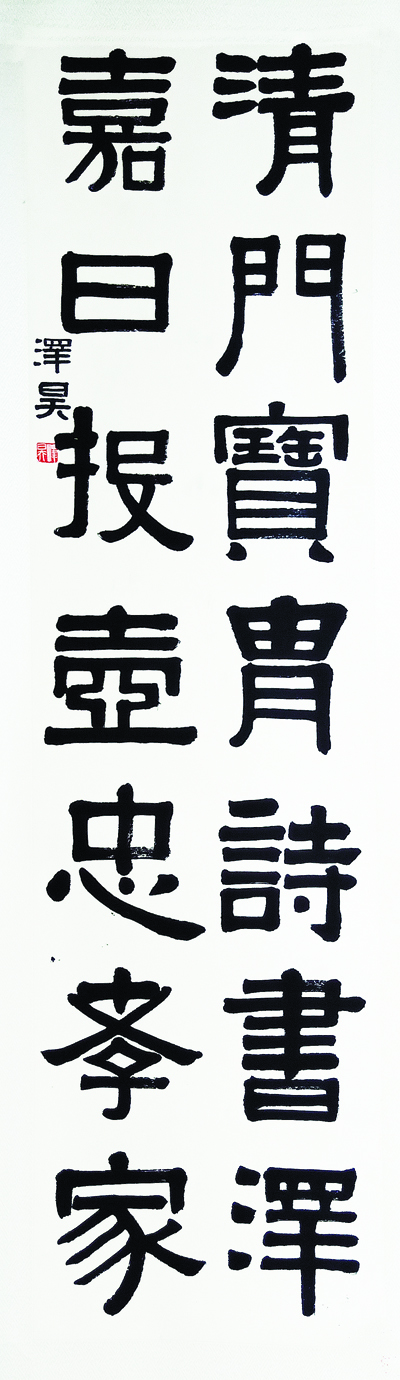 清門寶胄詩書澤
嘉日投壺忠孝家
澤昊